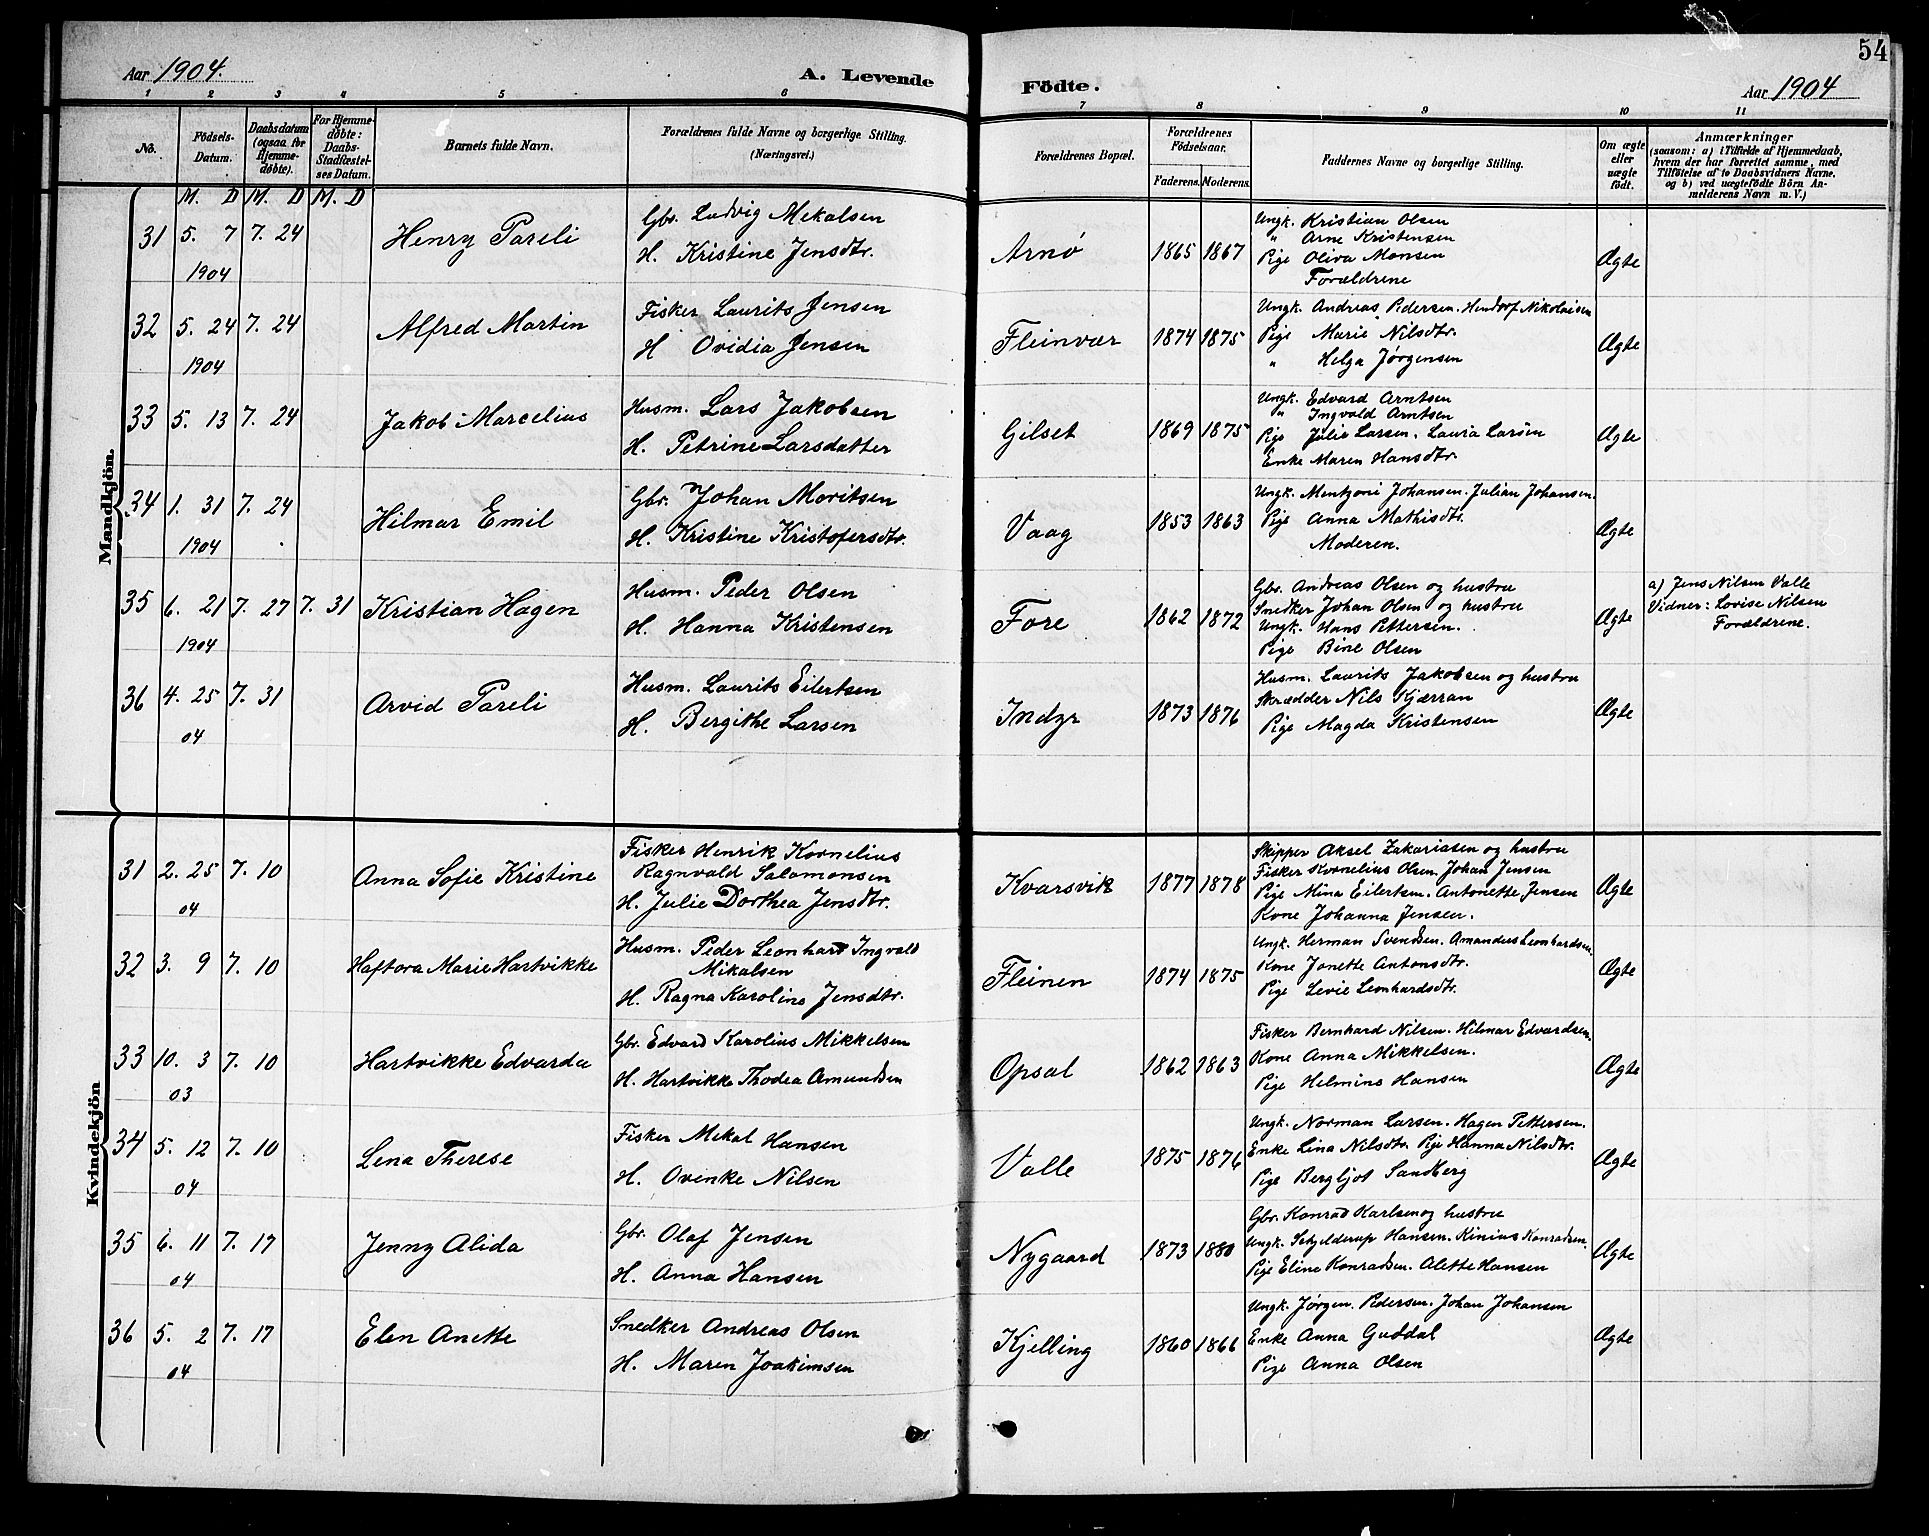 54
Aar 1904.
A. Levende Födte.
Aar 1904
1 2 3 4 5 6 7 8 9 10 11
No.
Födsels-Datum.
Daabsdatum (ogsaa for Hjemmedøbte).
For Hjemmedøbte: Daabs-Stadfæstelses Datum.
Barnets fulde Navn.
Forældrenes fulde Navne og borgerlige Stilling.
(Næringsvei.)
Forældrenes Bopæl.
Forældrenes Fødselsaar.
Faderens. Moderens.
Faddernes Navne og borgerlige Stilling.
Om ægte eller uægte født.
Anmærkninger
(saasom: a) i Tilfælde af Hjemmedaab,
hvem der har forrettet samme, med
Tilføielse af to Daabsvidners Navne,
og b) ved uægtefødte Börn Anmelderens Navn m. V.)
M. D M. D M. D
Mandkjön.
31 5. 7 7. 24
1904
Henry Pareli
Gbr. Ludvig Mekalsen
H. Kristine Jensdtr.
Arnø 1865 1867
Ungk. Kristian Olsen
" Arne Kristensen
Pige Oliva Monsen
Forældrene
Ægte
32 5. 24 7. 24
1904
Alfred Martin
Fisker Laurits Jensen
H Ovidia Jensen
Fleinvær 1874 1875
Ungk. Andreas Pedersen. Nikolaisen
Pige Marie Nilsdtr.
" Helga Jørgensen
Ægte
33 5. 13 7. 24
Jakob Marcelius
Husm. Lars Jakobsen
H. Petrine Larsdatter
Gilset 1869 1875
Ungk. Edvard Arntsen
" Ingvald Arntsen
Pige Julie Larsen. Laura Larsen
Enke Maren Hansdtr.
Ægte
34 1. 31 7. 24
1904
Hilmar Emil
Gbr. Johan Moritsen
H. Kristine Kristofersdtr.
Vaag 1853 1863
Ungk. Mentzoni Johansen. Julian Johansen.
Pige Anna Mathisdtr.
Moderen.
Ægte
35 6. 21 7. 27 7. 31
1904
Kristian Hagen
Husm. Peder Olsen
H. Hanna Kristensen
Fore 1862 1872
Gbr. Andreas Olsen og hustru
Snedker Johan Olsen og hustru
Ungk. Hans Pettersen.
Pige Bine Olsen
Ægte
a) Jens Nilsen Valle
Vidner: Lovise Nilsen
Forældrene.
36 4. 25 7. 31
04
Arvid Pareli
Husm. Laurits Eilertsen
H. Bergithe Larsen
Indyr 1873 1876
Husm. Laurits Jakobsen og hustru
Skrædder Nils Kjærran
Pige Magda Kristensen
Ægte
Kvindekjön
31 2. 25 7. 10
04
Anna Sofie Kristine
Fisker Henrik Kornelius
Ragnvald Salamonsen
H. Julie Dorthea Jensdtr.
Kvarsvik 1877 1878
Skipper Aksel Zakariasen og hustru
Fisker Kornelius Olsen. Johan Jensen
Pige Mina Eilertsen. Antonette Jensen
Kone Johanna Jensen.
Ægte
32 3. 9 7. 10
Haftora Marie Hartvikke
Husm. Peder Leonhard Ingvald
Mikalsen
H. Ragna Karoline Jensdtr.
Fleinen 1874 1875
Ungk. Herman Svendsen. Amandus Leonhardsen.
Kone Jonette Antonsdtr.
Pige Levie Leonhardsdtr.
Ægte
33 10. 3 7. 10
03
Hartvikke Edvarda
Gbr. Edvard Karolius Mikkelsen
H. Hartvikke Thodea Amundsen
Opsal 1862 1863
Fisker Bernhard Nilsen. Hilmar Edvardsen.
Kone Anna Mikkelsen.
Pige Helmine Hansen
Ægte
34 5. 12 7. 10
04
Lena Therese
Fisker Mekal Hansen
H. Ovenke Nilsen
Valle 1875 1876
Ungk. Norman Larsen. Hagen Pettersen.
Enke Lina Nilsdtr. Pige Hanna Nilsdtr.
Pige Bergljot Sandberg
Ægte
35 6. 11 7. 17
04
Jenny Alida
Gbr. Olaf Jensen
H. Anna Hansen
Nygaard 1873 1880
Gbr. Konrad Karlsen og hustru
Ungk. Schjelderup Hansen. Kinius Konradsen.
Pige Eline Konradsen. Alette Hansen
Ægte
36 5. 2 7. 17
04
Elen Anette
Snedker Andreas Olsen
H. Maren Joakimsen
Kjelling 1860 1866
Ungk. Jørgen Pedersen. Johan Johansen
Enke Anna Guddal
Pige Anna Olsen
Ægte